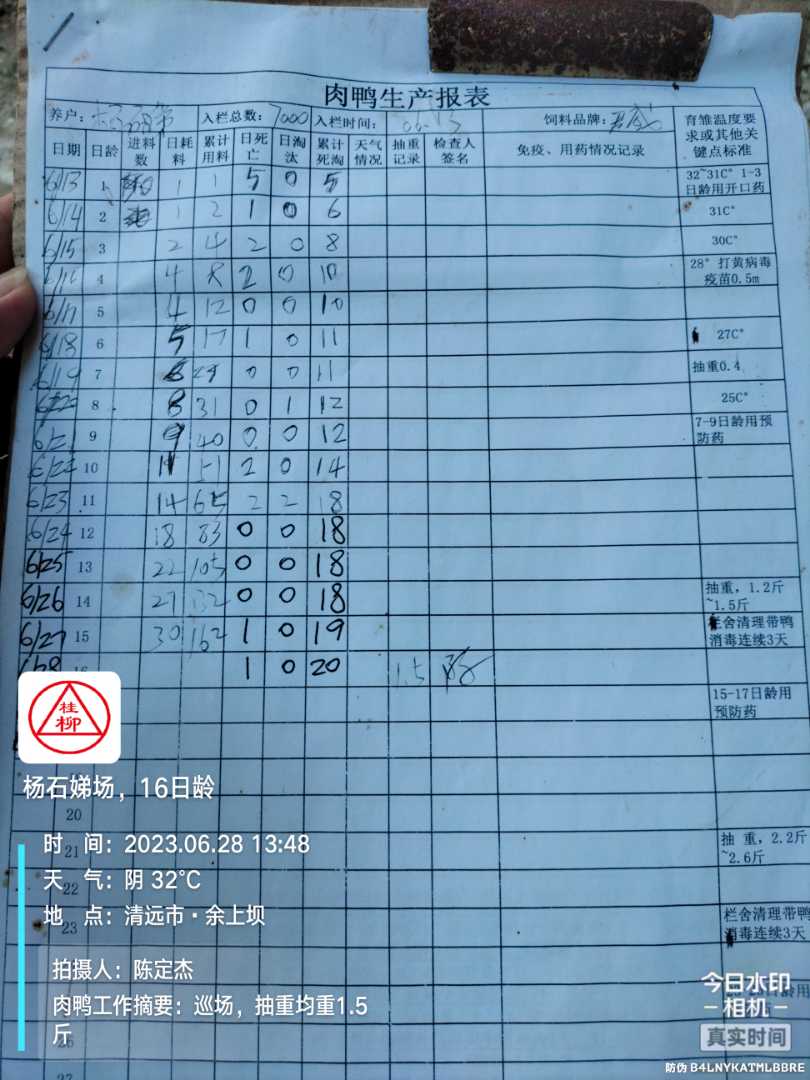 肉鸭生产报表
养户: 入栏总数: 7000 入栏时间: 饲料品牌: 育雏温度要求或其他关键点标准
日期 日龄 进料数 日耗料 累计用料 日死亡 日淘汰 累计死淘 天气情况 抽重记录 检查人签名 免疫、用药情况记录
6/13 1 1 1 5 0 5 32~31C° 1-3日龄用开口药
6/14 2 1 2 1 0 6 31C°
6/15 3 2 4 2 0 8 30C°
6/16 4 4 8 2 0 10 28° 打黄病毒疫苗0.5m
6/17 5 4 12 0 0 10
6/18 6 5 17 1 0 11 27C°
6/19 7 0 0 11 抽重0.4
8 8 31 0 1 12 25C°
6/21 9 9 40 0 0 12 7-9日龄用预防药
6/22 10 11 51 2 0 14
6/23 11 14 65 2 2 18
6/24 12 18 83 0 0 18
6/25 13 22 105 0 0 18
6/26 14 27 132 0 0 18 抽重，1.2斤~1.5斤
6/27 15 30 162 1 0 19 栏舍清理带鸭消毒连续3天
1 0 20 1.5
15-17日龄用预防药
20
21 抽重，2.2斤~2.6斤
22
23 栏舍清理带鸭消毒连续3天
桂柳
杨石娣场，16日龄
时 间：2023.06.28 13:48
天 气：阴 32℃
地 点：清远市·余上坝
拍摄人：陈定杰
肉鸭工作摘要：巡场，抽重均重1.5
斤
今日水印
相机
真实时间
防伪 B4LNYKATMLBBRE